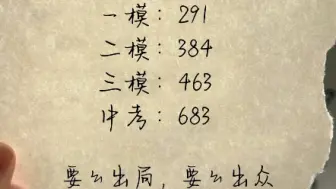 一模：291
二模：384
三模：463
中考：683
要么出局，要么出众